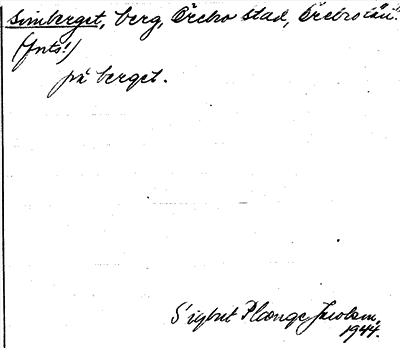 Simberget, berg, Örebro stad, Örebro län.
(forts!)
på berget.
Sigbrit Plænge Jacobson,
1944.